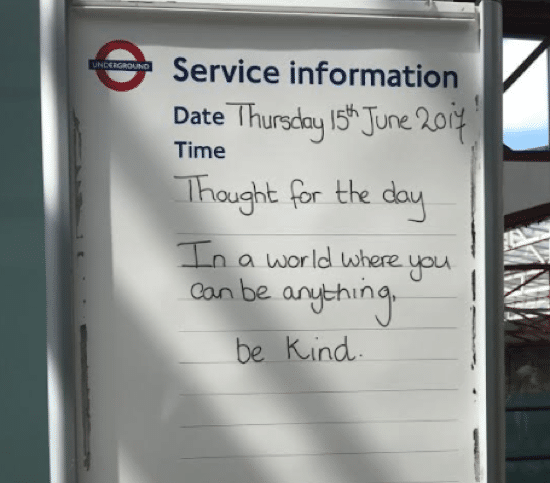 UNDERGROUND
Service information
Date Thursday 15th June 2017
Time
Thought for the day
In a world where you
can be anything,
be kind.